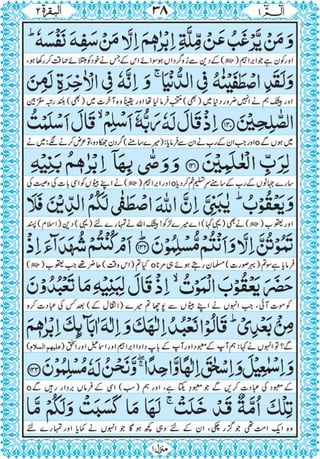 البقرة ۲
۳۸
الٓمّٓ ۱
وَ مَنْ يَّرْغَبُ عَنْ مِّلَّةِ اِبْرٰهٖمَ اِلَّا مَنْ سَفِهَ نَفْسَهٗ ؕ
اور کون ہے جو ابراہیم کے دین سے روگرداں ہو سوائے اس کے جس نے خود کو مبتلائے حماقت کر رکھا ہو،
وَ لَقَدِ اصْطَفَيْنٰهُ فِي الدُّنْيَا ۚ وَ اِنَّهٗ فِي الْاٰخِرَةِ لَمِنَ
اور بیشک ہم نے انہیں ضرور دنیا میں (بھی) منتخب فرما لیا تھا اور یقیناً وہ آخرت میں (بھی) بلند رتبہ مقربین
الصّٰلِحِيْنَ ﴿۱۳۰﴾ اِذْ قَالَ لَهٗ رَبُّهٗۤ اَسْلِمْ ۙ قَالَ اَسْلَمْتُ
میں ہوں گے ۝ اور جب ان کے رب نے ان سے فرمایا: (میرے سامنے) گردن جھکا دو، تو عرض کرنے لگے: میں نے
لِرَبِّ الْعٰلَمِيْنَ ﴿۱۳۱﴾ وَ وَصّٰى بِهَاۤ اِبْرٰهٖمُ بَنِيْهِ
سارے جہانوں کے رب کے سامنے سر تسلیم خم کر دیا ۝ اور ابراہیم نے اپنے بیٹوں کو اسی بات کی وصیت کی
وَ يَعْقُوْبُ ؕ يٰبَنِيَّ اِنَّ اللّٰهَ اصْطَفٰى لَكُمُ الدِّيْنَ فَلَا
اور یعقوب نے بھی (یہی کہا) اے میرے لڑکو! بیشک اللہ نے تمہارے لئے (یہی) دین (اسلام) پسند
تَمُوْتُنَّ اِلَّا وَ اَنْتُمْ مُّسْلِمُوْنَ ﴿۱۳۲﴾ اَمْ كُنْتُمْ شُهَدَآءَ اِذْ
فرمایا ہے سو تم (بہرصورت) مسلمان رہتے ہوئے ہی مرنا ۝ کیا تم (اس وقت) حاضر تھے جب یعقوب
حَضَرَ يَعْقُوْبَ الْمَوْتُ ۙ اِذْ قَالَ لِبَنِيْهِ مَا تَعْبُدُوْنَ
کو موت آئی، جب انہوں نے اپنے بیٹوں سے پوچھا تم میرے (انتقال کے) بعد کس کی عبادت کرو
مِنْۢ بَعْدِيْ ؕ قَالُوْا نَعْبُدُ اِلٰهَكَ وَ اِلٰهَ اٰبَآئِكَ اِبْرٰهٖمَ
گے؟ تو انہوں نے کہا: ہم آپ کے معبود اور آپ کے باپ دادا ابراہیم اور اسماعیل اور اسحٰق (علیہم السلام)
وَ اِسْمٰعِيْلَ وَ اِسْحٰقَ اِلٰهًا وَّاحِدًا ۖۚ وَّ نَحْنُ لَهٗ مُسْلِمُوْنَ ﴿۱۳۳﴾
کے معبود کی عبادت کریں گے جو معبود یکتا ہے، اور ہم (سب) اسی کے فرماں بردار رہیں گے ۝
تِلْكَ اُمَّةٌ قَدْ خَلَتْ ۚ لَهَا مَا كَسَبَتْ وَ لَكُمْ مَّا
وہ ایک امت تھی جو گزر چکی، ان کے لئے وہی کچھ ہو گا جو انہوں نے کمایا اور تمہارے لئے
منزل ۱